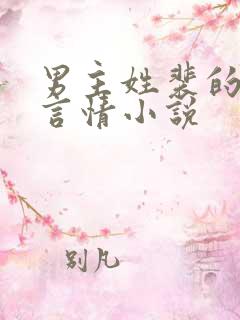 男主姓裴的
言情小说
别凡